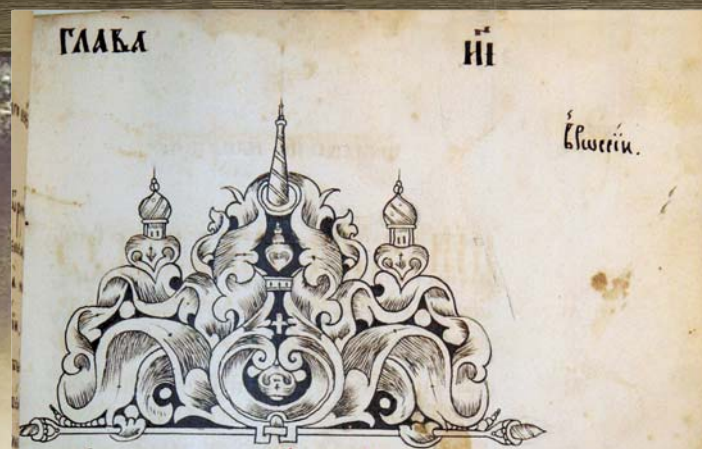 ГЛАВА
И҃І
в̾Рѡссі́и.